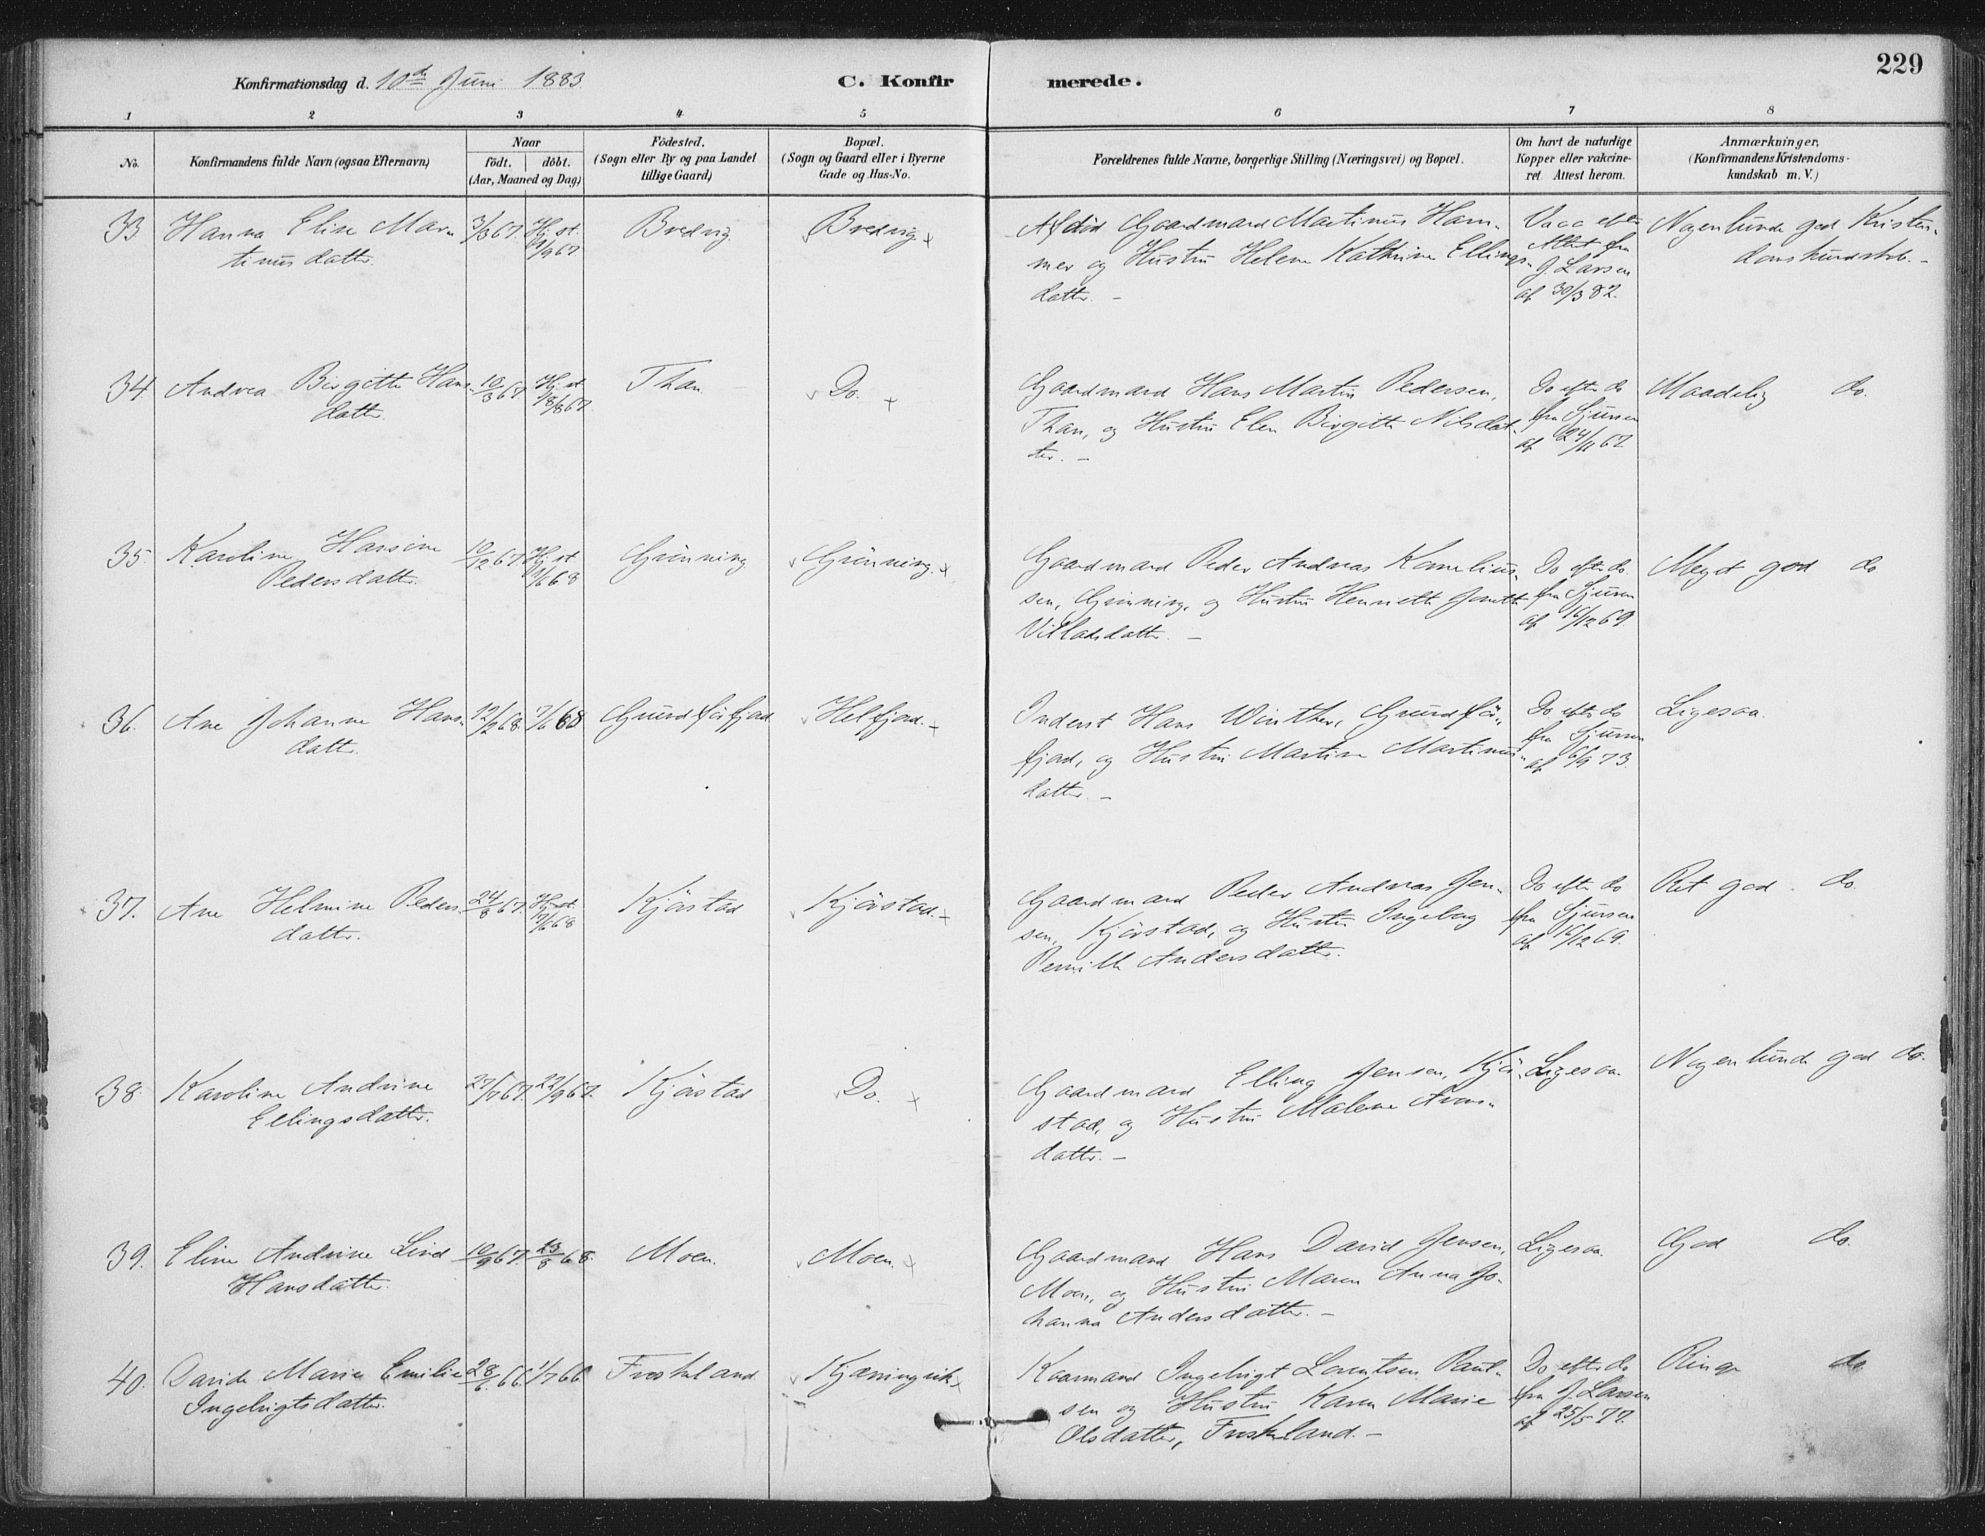 229
Konfirmationsdag d. 10de Juni 1883
C. Konfirmerede.
1 2 3 4 5 6 7 8
No.
Konfirmandens fulde Navn (ogsaa Efternavn)
Naar
födt. döbt.
(Aar, Maaned og Dag)
Födested.
(Sogn eller By og paa Landet
tillige Gaard)
Bopæl.
(Sogn og Gaard eller i Byerne
Gade og Hus-No.
Forældrenes fulde Navne, borgerlige Stilling (Næringsvei) og Bopæl.
Om havt de naturlige
Kopper eller vakcine-
ret Attest herom.
Anmærkninger,
(Konfirmandens Kristendoms-
kundskab m. V.)
33 Hanna Elise Mar-
tinusdatter.
3/3 67. Hj. st. 1/9 67
Bredvig.
Bredvig.
Afdöd Gaardmand Martinus Ham-
mer og Hustru Helene Kathrine Ellings-
datter. -
Vacc efter
Attest fra
J. Larsen
af 30/3 82.
Nogenlunde god Kristen-
domskundskab. -
34. Andrea Birgitte Hans-
datter.
10/3 67 Hj. st. 18/8 67.
Than.
Do.
Gaardmand Hans Martin Pedersen,
Than, og Hustru Elen Birgitte Nilsdat-
ter. -
Do efter do
fra Sjursen
af 24/11 67.
Maadelig do.
35. Karoline Hansine
Pedersdatter.
10/12 67. Hj. st. 1/6 68
Grönning
Grönning.
Gaardmand Peder Andreas Kornelius-
sen, Grönning, og Hustru Henriette Jonette
Villadsdatter. -
Do efter do.
fra Sjursen
af 16/12 69
Meget god do
36. Ane Johanne Hans-
datter.
12/2 68. 7/6 68
Grundförfjord
Helfjord.
Inderst Hans Winther, Grundför-
fjord, og Hustru Martine Martinus-
datter. -
Do efter do
fra Sjursen
af 6/9 73.
Ligesaa.
37. Ane Helmine Peders-
datter.
24/8 67. Hj. st. 7/6 68
Kjörstad
Kjörstad.
Gaardmand Peder Andreas Jen-
sen, Kjörstad, og Hustru Ingeborg
Pernille Andersdatter.
Do efter do
fra Sjursen
af 16/12 69.
Ret god do.
38. Karoline Andrine
Ellingsdatter.
27/7 67. 22/9 67.
Kjörstad
Do.
Gaardmand Elling Jensen, Kjör-
stad, og Hustru Malene Arons-
datter. -
Ligesaa
Nogenlunde god do.
39. Eline Andrine Lind
Hansdatter.
10/9 67. 23/8 68.
Moen.
Moen.
Gaardmand Hans David Jensen,
Moen, og Hustru Maren Anna Jo-
hanna Andersdatter. -
Ligesaa.
God do.
40. Daride Marie Emilie
Ingebrigtsdatter.
28/6 66. 1/7 66
Froskeland
Kjærringvik
Kaarmand Ingebrigt Lorentsen Paul-
sen og Hustru Karen Marie
Olsdatter, Froskeland. -
Do efter do
fra J. Larsen
af 25/5 77.
Ringe do.